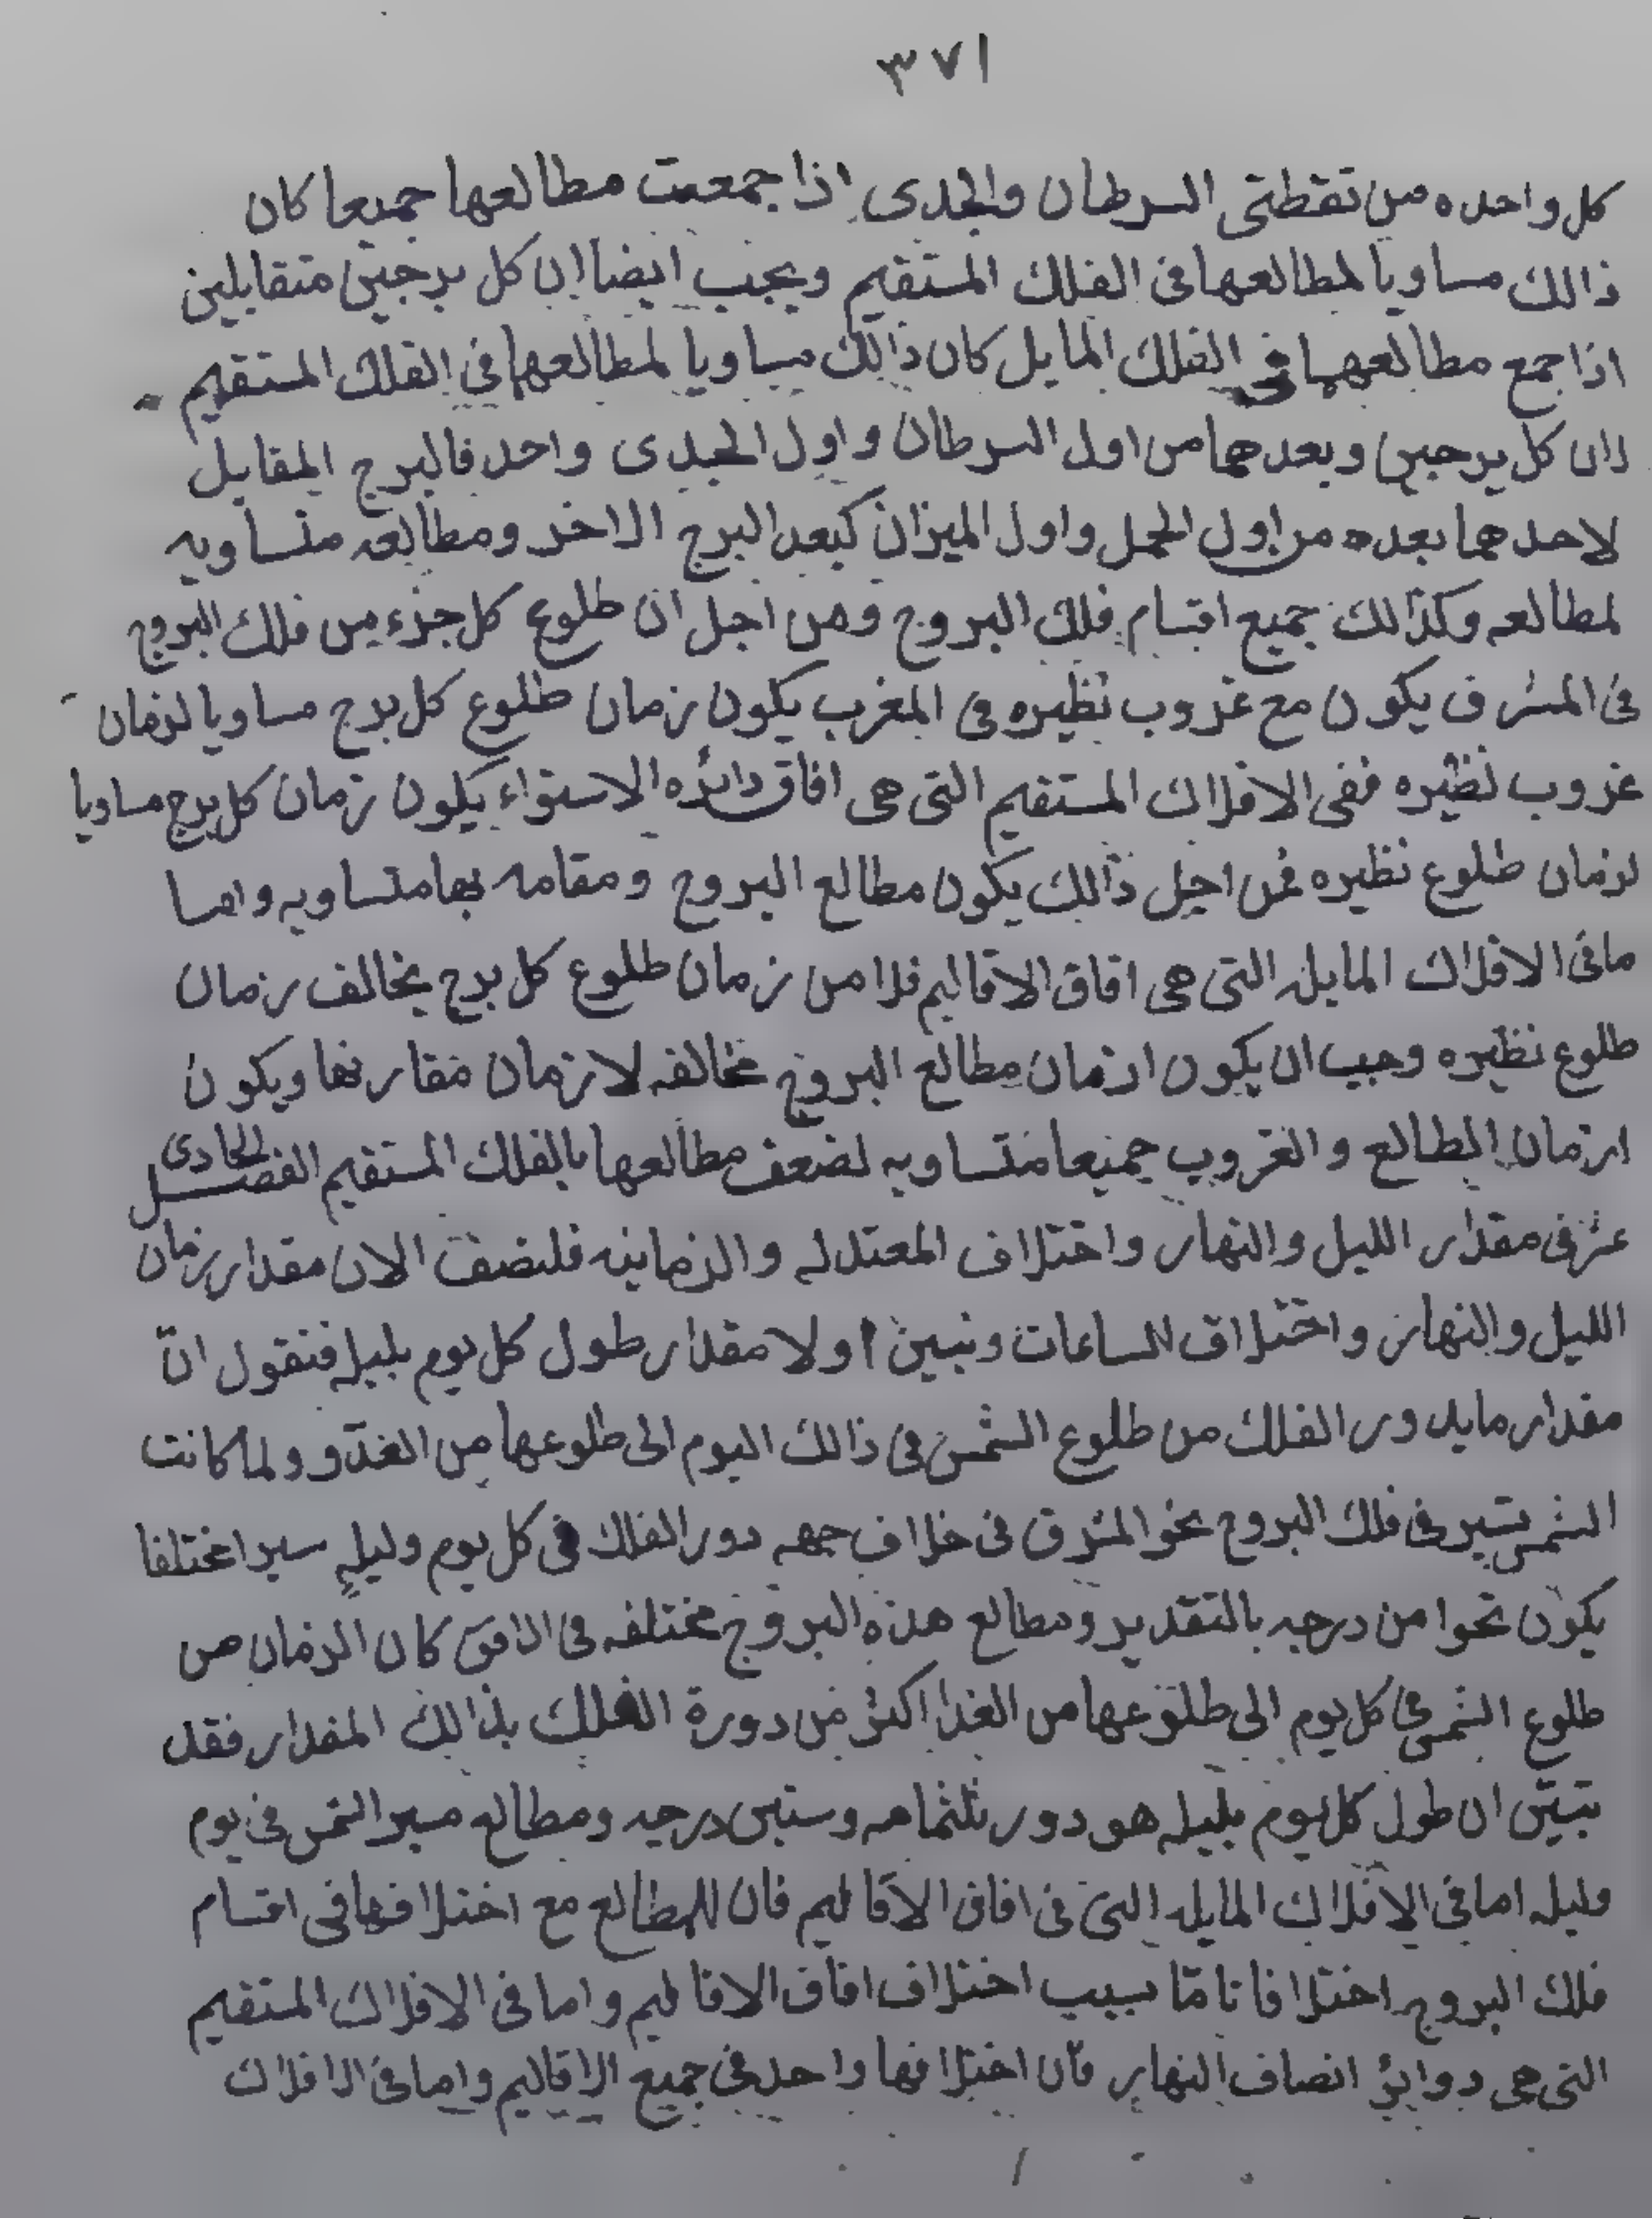 ٣٧١
كل واحده من نقطتى السرطان والجدى اذا جمعت مطالعها جميعا كان
ذالك مساويا لمطالعها فى الفلك المستقيم ويجب ايضا ان كل برجين متقابلين
اذا جمع مطالعهما فى الفلك المايل كان ذالك مساويا لمطالعهما فى الفلك المستقيم
لان كل برجين وبعدهما من اول السرطان واول الجدى واحد فالبرج المقابل
لاحدهما بعده من اول الحمل واول الميزان كبعد البرج الاخر ومطالعه متساويه
لمطالعه وكذالك جميع اقسام فلك البروج ومن اجل ان طلوع كل جزء من فلك البروج
فى المشرق يكون مع غروب نظيره فى المغرب يكون زمان طلوع كل برج مساويا لزمان
غروب نظيره ففى الافلاك المستقيم التى هى افاق دائره الاستواء يكون زمان كل برج مساويا
لزمان طلوع نظيره فمن اجل ذالك يكون مطالع البروج ومقامه بها متساويه واما
مافى الافلاك المايله التى هى افاق الاقاليم فلا من زمان طلوع كل برج يخالف زمان
طلوع نظيره وجب ان يكون ازمان مطالع البروج مخالفه لازمان مقاربها ويكون
ازمان المطالع والغروب جميعا متساويه لضعف مطالعها بالفلك المستقيم الفصل الحادى
عشر فى مقدار الليل والنهار واختلاف المعتدله والزمانيه فلنصف الان مقدار زمان
الليل والنهار واختلاف الساعات ونبين اولا مقدار طول كل يوم بليله فنقول ان
مقدار مايدور الفلك من طلوع الشمس فى ذالك اليوم الى طلوعها من الغدو ولما كانت
الشمس تسير فى فلك البروج نحو المشرق فى خلاف جهه دور الفلك فى كل يوم وليله سيرا مختلفا
يكون نحوا من درجه بالتقدير ومطالع هذه البروج مختلفه فى الافق كان الزمان من
طلوع الشمس فى كل يوم الى طلوعها من الغدا اكثر من دورة الفلك بذالك المقدار فقد
تبيّن ان طول كل يوم بليله هو دور ثلثمامه وستين درجه ومطالع مسير الشمس فى يوم
وليله اما فى الافلاك المايله التى فى افاق الاقاليم فان للمطالع مع اختلافها فى اقسام
فلك البروج اختلافا تامّا بسبب اختلاف افاق الاقاليم واما فى الافلاك المستقيم
التى هى دوائر انصاف النهار فان اختلافها واحد فى جميع الاقاليم واما فى الافلاك